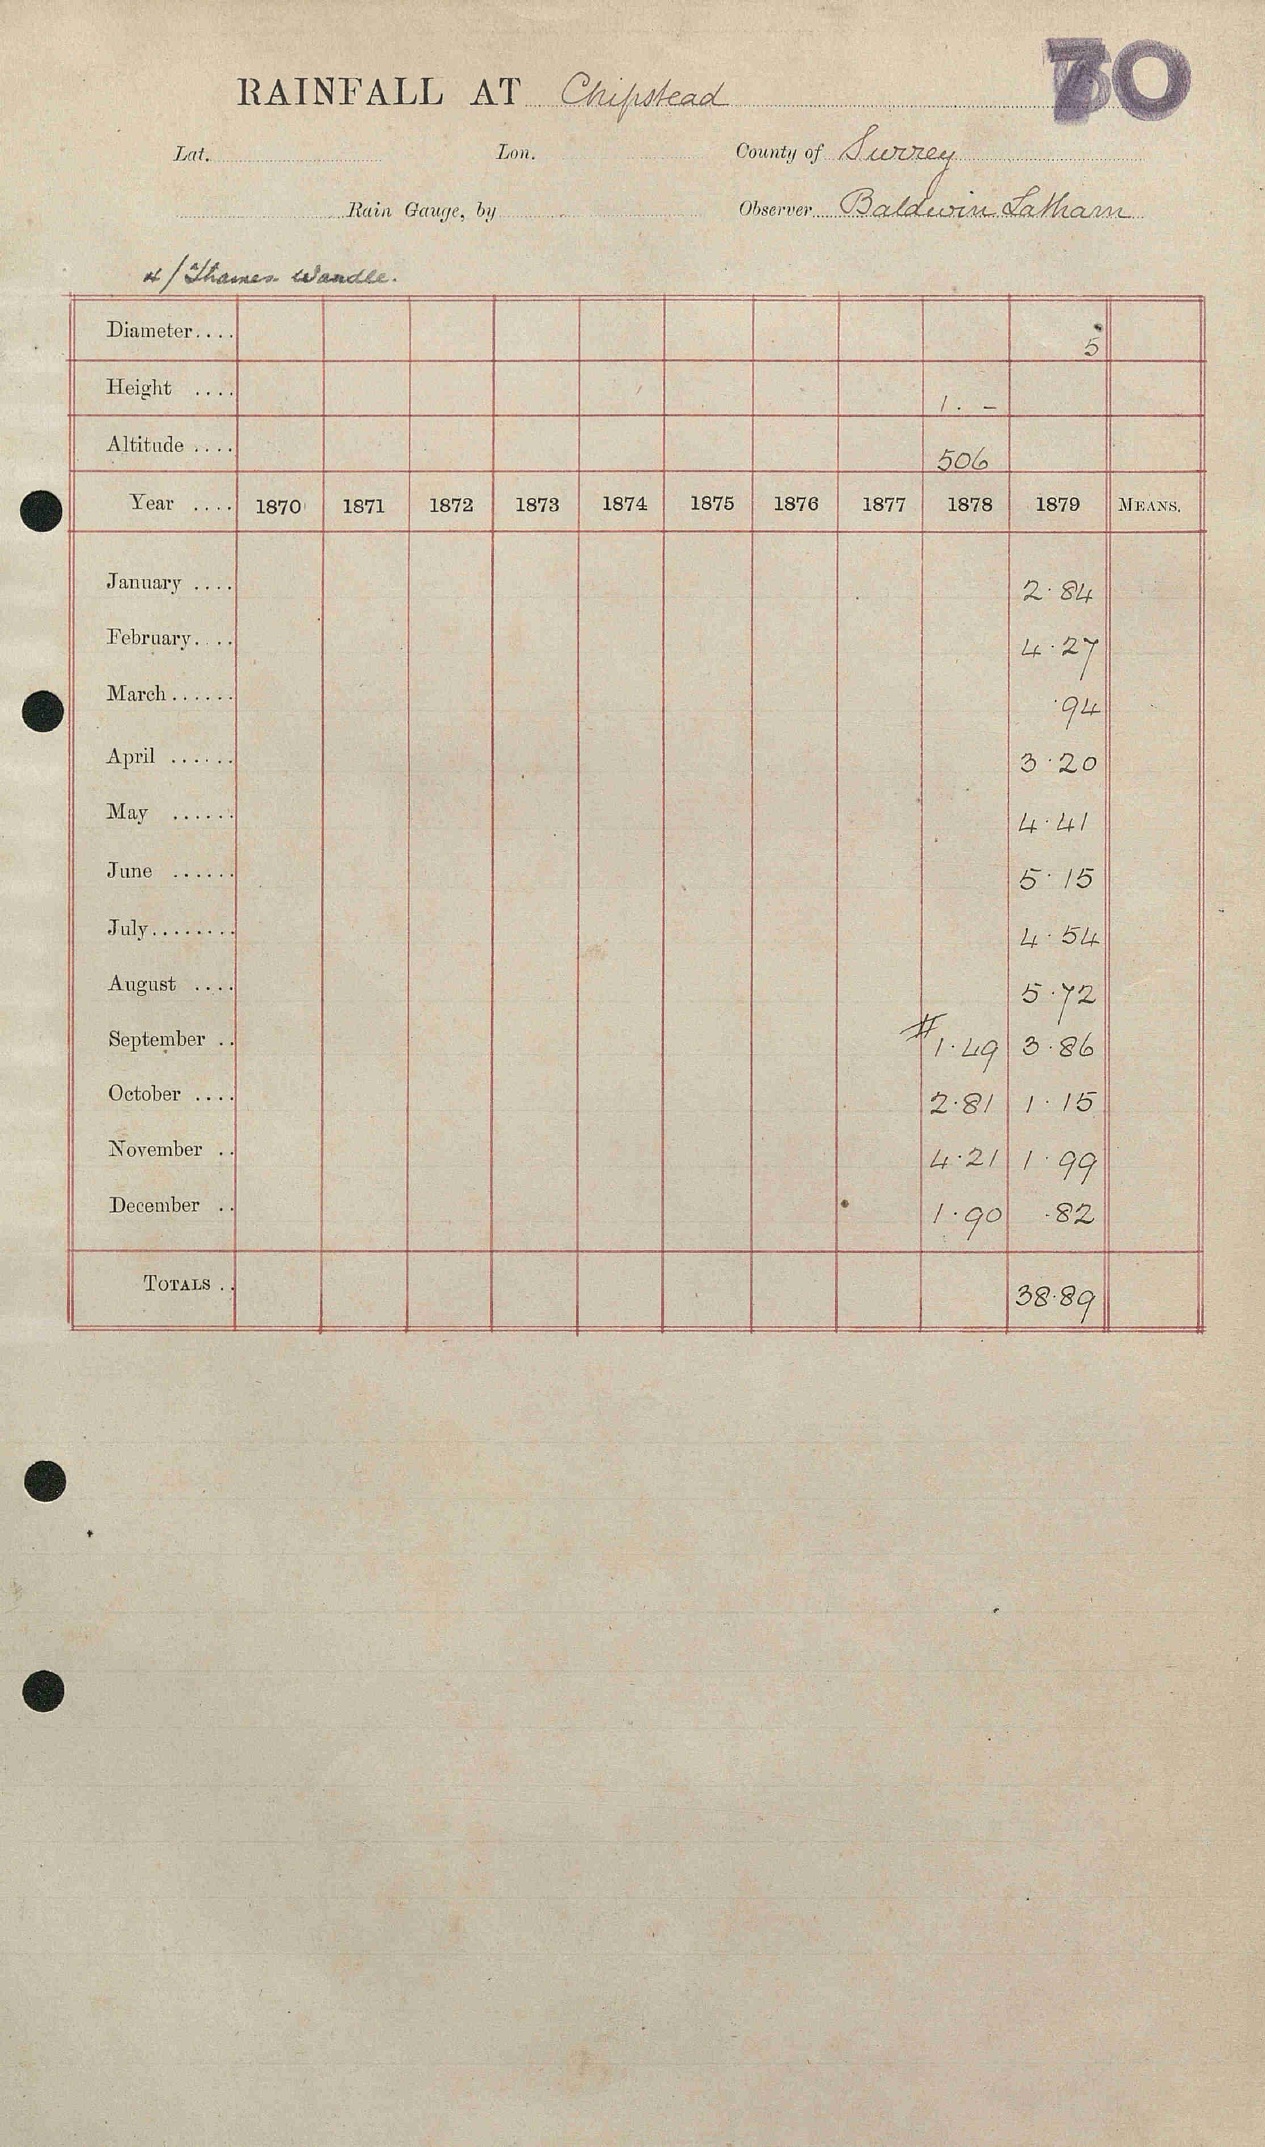 70
RAINFALL AT Chipstead
Lat. Lon. County of Surrey
Rain Gauge, by Observer Baldwin Latham
4/Thames Wandle.
Diameter.... 5
Height .... 1. -
Altitude .... 506
Year .... 1870 1871 1872 1873 1874 1875 1876 1877 1878 1879 MEANS.
January .... 2.84
February.... 4.27
March...... .94
April ...... 3.20
May ...... 4.41
June ...... 5.15
July........ 4.54
August .... 5.72
September .. # 1.49 3.86
October .... 2.81 1.15
November .. 4.21 1.99
December .. 1.90 .82
TOTALS .. 38.89